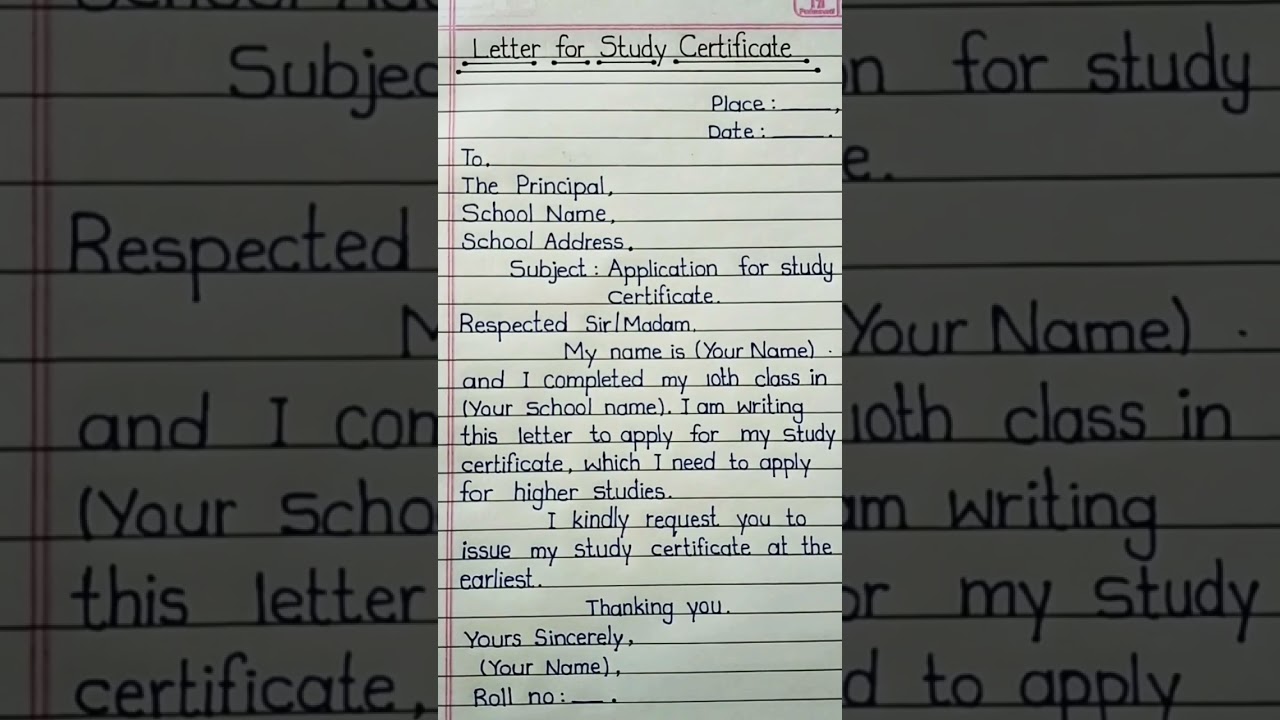 Letter for Study Certificate
Place : ____,
Date : ____.
To,
The Principal,
School Name,
School Address.
Subject : Application for study
Certificate.
Respected Sir/Madam,
My name is (Your Name) .
and I completed my 10th class in
(Your School name). I am writing
this letter to apply for my study
certificate, which I need to apply
for higher studies.
I kindly request you to
issue my study certificate at the
earliest.
Thanking you.
Yours Sincerely,
(Your Name),
Roll no : ___ .